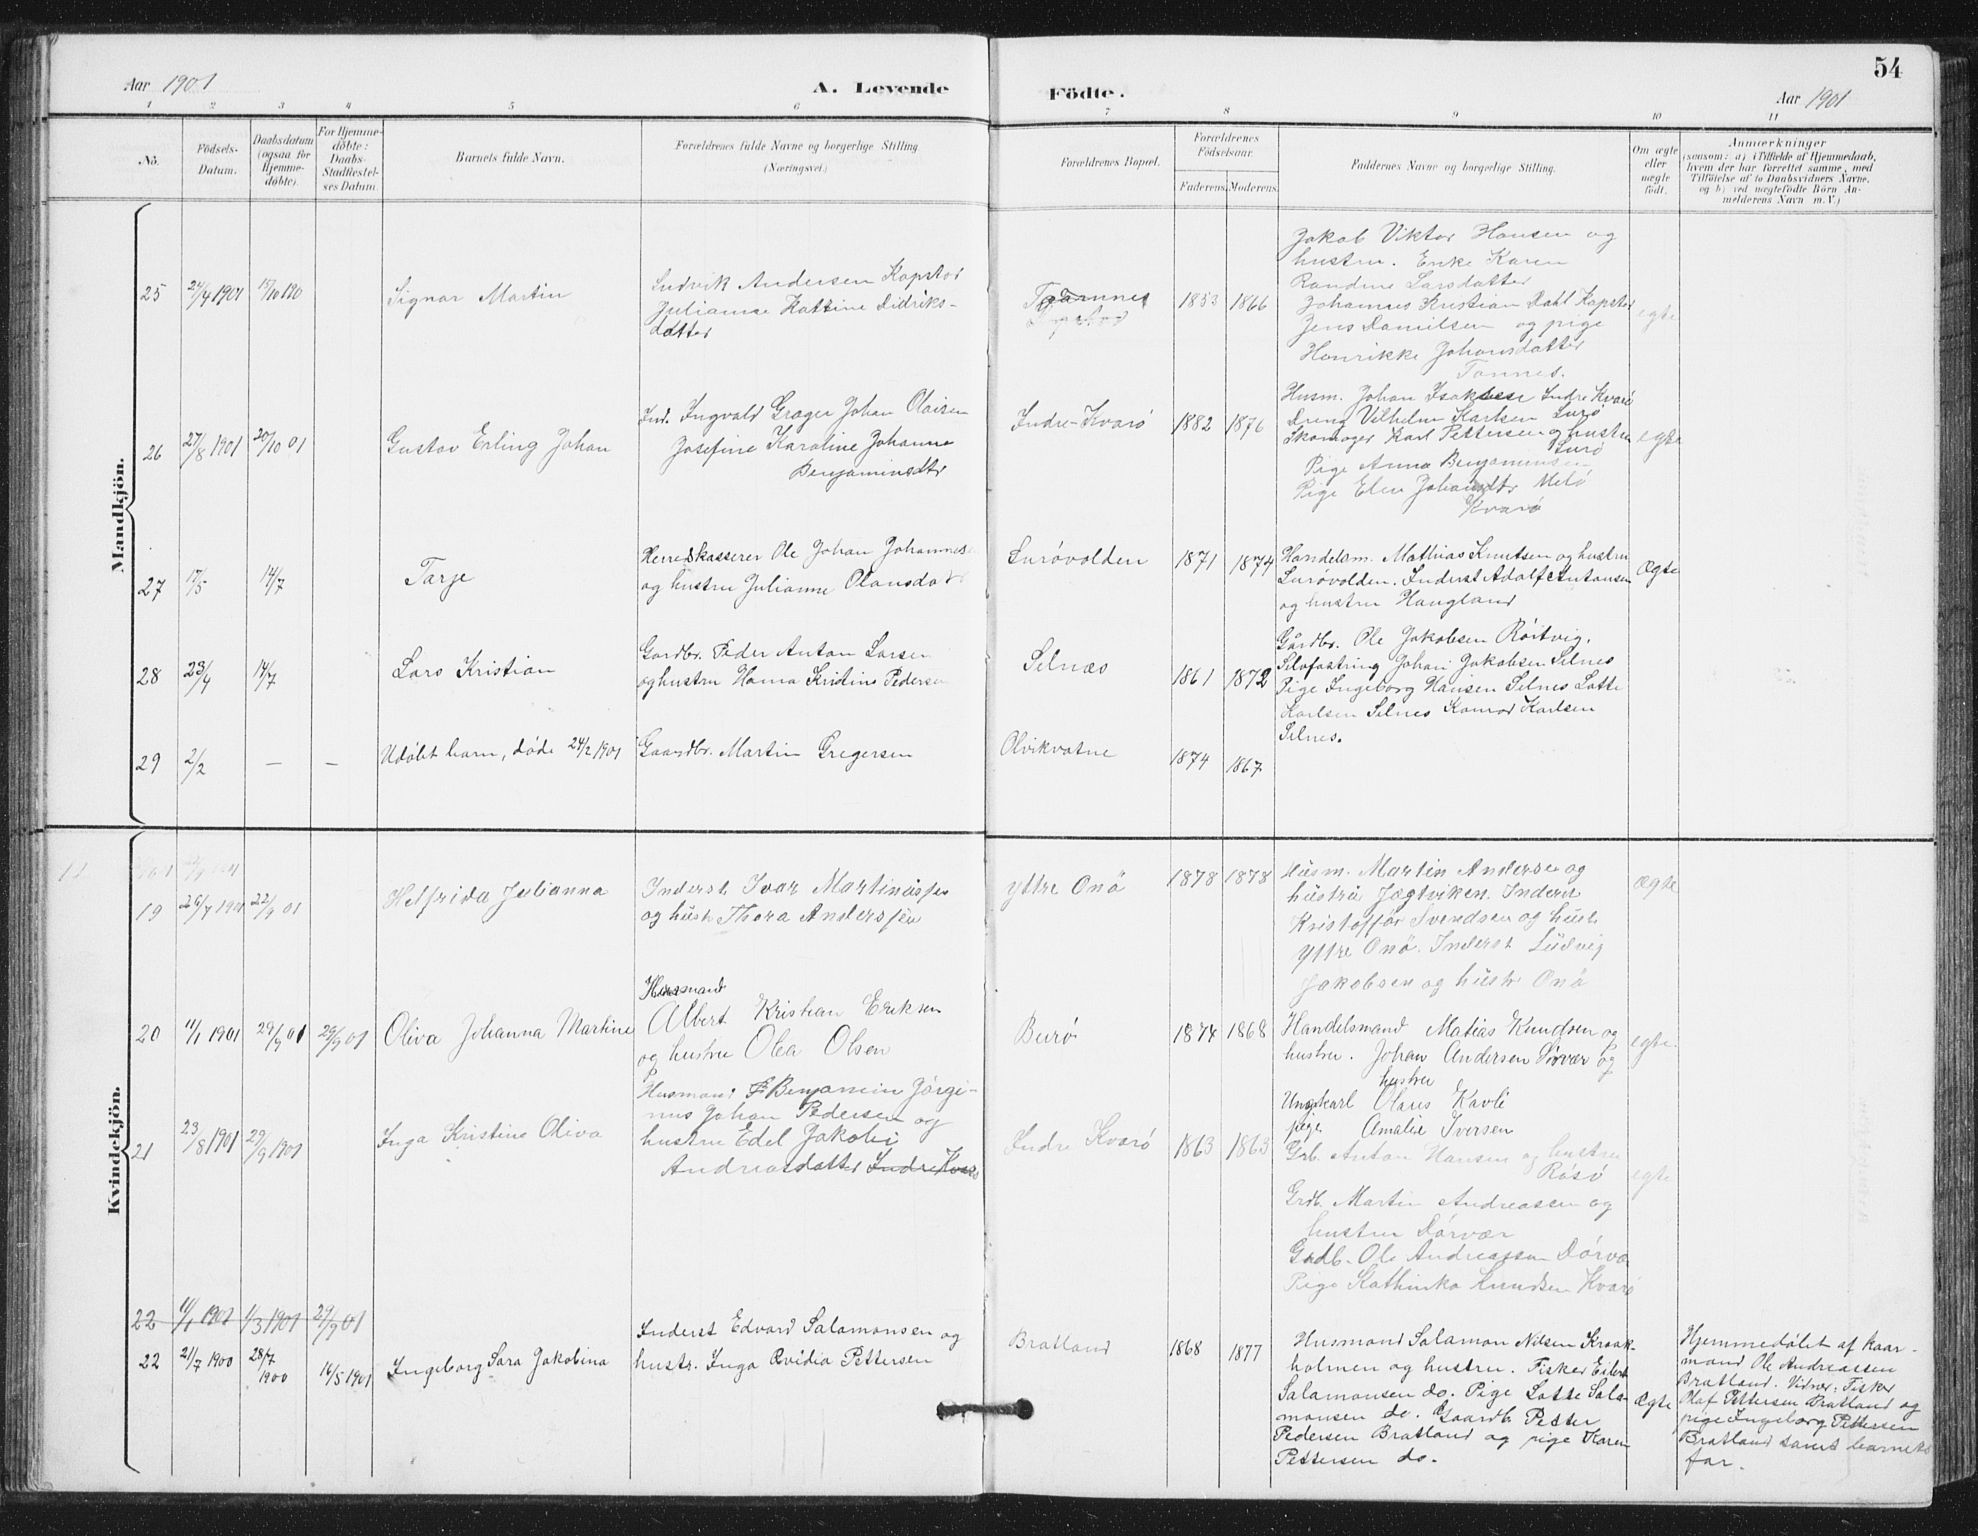 Aar 1901
A. Levende
Födte.
54
Aar 1901
1 2 3 4 5 6 7 8 9 10 11
No.
Födsels-
Datum.
Daabsdatum
(ogsaa for
Hjemme-
døbte).
For Hjemme-
døbte:
Daabs-
Stadfæstel-
ses Datum.
Barnets fulde Navn.
Forældrenes fulde Navne og borgerlige Stilling
(Næringsvei.)
Forældrenes Bopæl.
Forældrenes
Födselsaar.
Faderens. Moderens.
Faddernes Navne og borgerlige Stilling.
Om ægte
eller
uægte
födt.
Anmærkninger
(saasom: a) i Tilfælde af Hjemmedaab,
hvem der har forrettet samme, med
Tilføielse af to Daabsvidners Navne,
og b) ved uægtefödte Börn An-
melderens Navn m. V.)
Mandkjön.
25
24/4 1901
Signar Martin
Ludvik Andersen Kopstad
Julianne Kattine Didriks-
datter
Tonnes
1853
1866
Jakob Viktor Hansen og
hustru. Enke Karen
Randine Larsdatter
Johannes Kristian Dahl Kopstad
Jens Danielsen og pige
Henrikke Johansdatter
Tonnes.
egte
26
27/8 1901
20/10 01
Gustav Erling Johan
Ind. Ingvald Grager Johan Olaisen
Josefine Karoline Johanne
Benjaminsdtr
Indre-Kvarö
1882
1876
Husm. Johan Isaksen Indre Kvarö
Dreng Vilhelm Karlsen Lurö
Skomager Karl Pettersen og hustru
Lurö
Pige Anna Benjaminsen
Pige Elen Johansdtr Melö
Kvarö
egte
27
17/5
14/7
Tarje
Herredskasserer Ole Johan Johannes
og hustru Julianne Olausdat
Luróvolden
1871
1874
Handelsm. Mathias Knutsen og hustru
Luróvolden. Inderst Adolf Antonsen
og hustru Haugland
Ægte
28
23/4
14/7
Lars Kristian
Gardbr. Peder Anton Larsen
og hustru Hanna Kristine Pedersen
Selnæs
1861
1872
Gårdbr. Ole Jakobsen Röitvig.
Selvfostring Johan Jakobsen Selnes
Pige Ingeborg Hansen Selnes Lotte
Karlsen Selnes Konrad Karlsen
Selnes.
29
2/2
–
–
Udöbt barn, döde 24/2 1901
Gaardbr. Martin Gregersen
Olvikvatne
1874
1867
Kvindekjön.
19
26/7 1901
22/9 01
Helfrida Julianna
Inderst Ivar Martinussen
og hustr Thora Andersen
Yttre Onö
1878
1878
Husm. Martin Andersen og
hustru Jægtviken. Inderst
Kristoffer Svendsen og hustr
Yttre Onö. Inderst Ludvig
Jakobsen og hustr Onö
Ægte
20
11/1 1901
29/9 01
29/9 01
Oliva Johanna Martine
Husmand
Albert Kristian Eriksen
og hustru Olea Olsen
Burö
1874
1868
Handelsmand Matias Knudsen og
hustru. Johan Andersen Sörvær og
hustru
Ungkarl Olaus Kavli
pige Amalie Iversen
egte.
21
23/8 1901
29/9 1901
Inga Kristine Oliva
Husmand Benjamin Jörgi-
nus Johan Pedersen og
hustru Edel Jakobi
Andreasdatter Indre Kvarö
Indre Kvarö
1863
1863
Grb. Anton Hansen og hustru
Rösö
Grdb. Martin Andreassen og
hustru Dörvær
Grdb. Ole Andreassen Dörvæ
Pige Kathinka Knudsen Kvarö
egte
22 11/1 1901 1/3 1901 29/9 01
22
21/7 1900
28/7
1900
16/5 1901
Ingeborg Sara Jakobina
Inderst Edvard Salamonsen og
hustr. Inga Ovidia Pettersen
Bratland
1868
1877
Husmand Salamon Nilsen Kraak-
holmen og hustru. Fisker Eilert
Salamonsen do. Pige Lotte Sala-
monsen do. Gaardb Petter
Pedersen Bratland og pige Karen
Pettersen do.
Ægte
Hjemmedöbt af kaar-
mand Ole Andreassen
Bratland. Vidner: Fisker
Olaf Pettersen Bratland og
pige Ingeborg Pettersen
Bratland samt barnets
far.